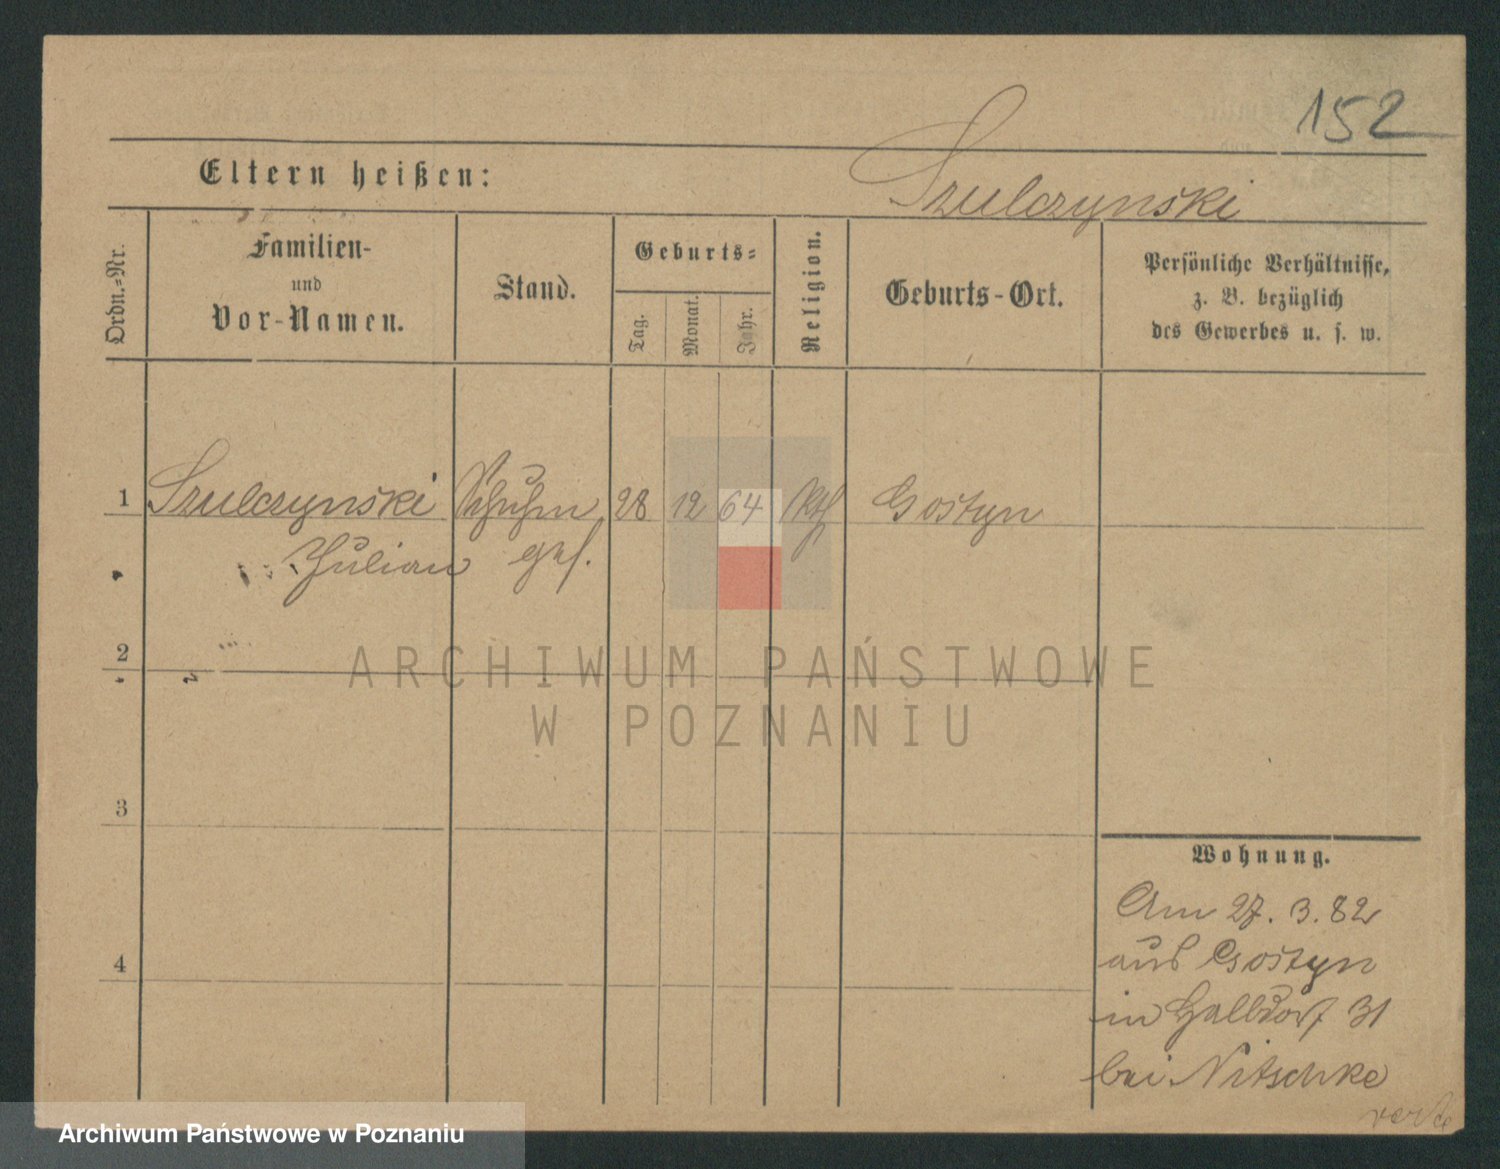 152
Eltern heißen: Szulczynski
Ordn.=Nr.
Familien-
und
Vor-Namen.
Stand.
Geburts=
Tag.
Monat.
Jahr.
Religion.
Geburts-Ort.
Persönliche Verhältnisse,
z. B. bezüglich
des Gewerbes u. s. w.
1 Szulczynski Schuhm 28 12 64 Kth Gostyn
Julian ges.
2
3
4
Wohnung.
Am 27. 3. 82
aus Gostyn
in Halbdorf 31
bei Nitschke
verte
ARCHIWUM PAŃSTWOWE
W POZNANIU
Archiwum Państwowe w Poznaniu